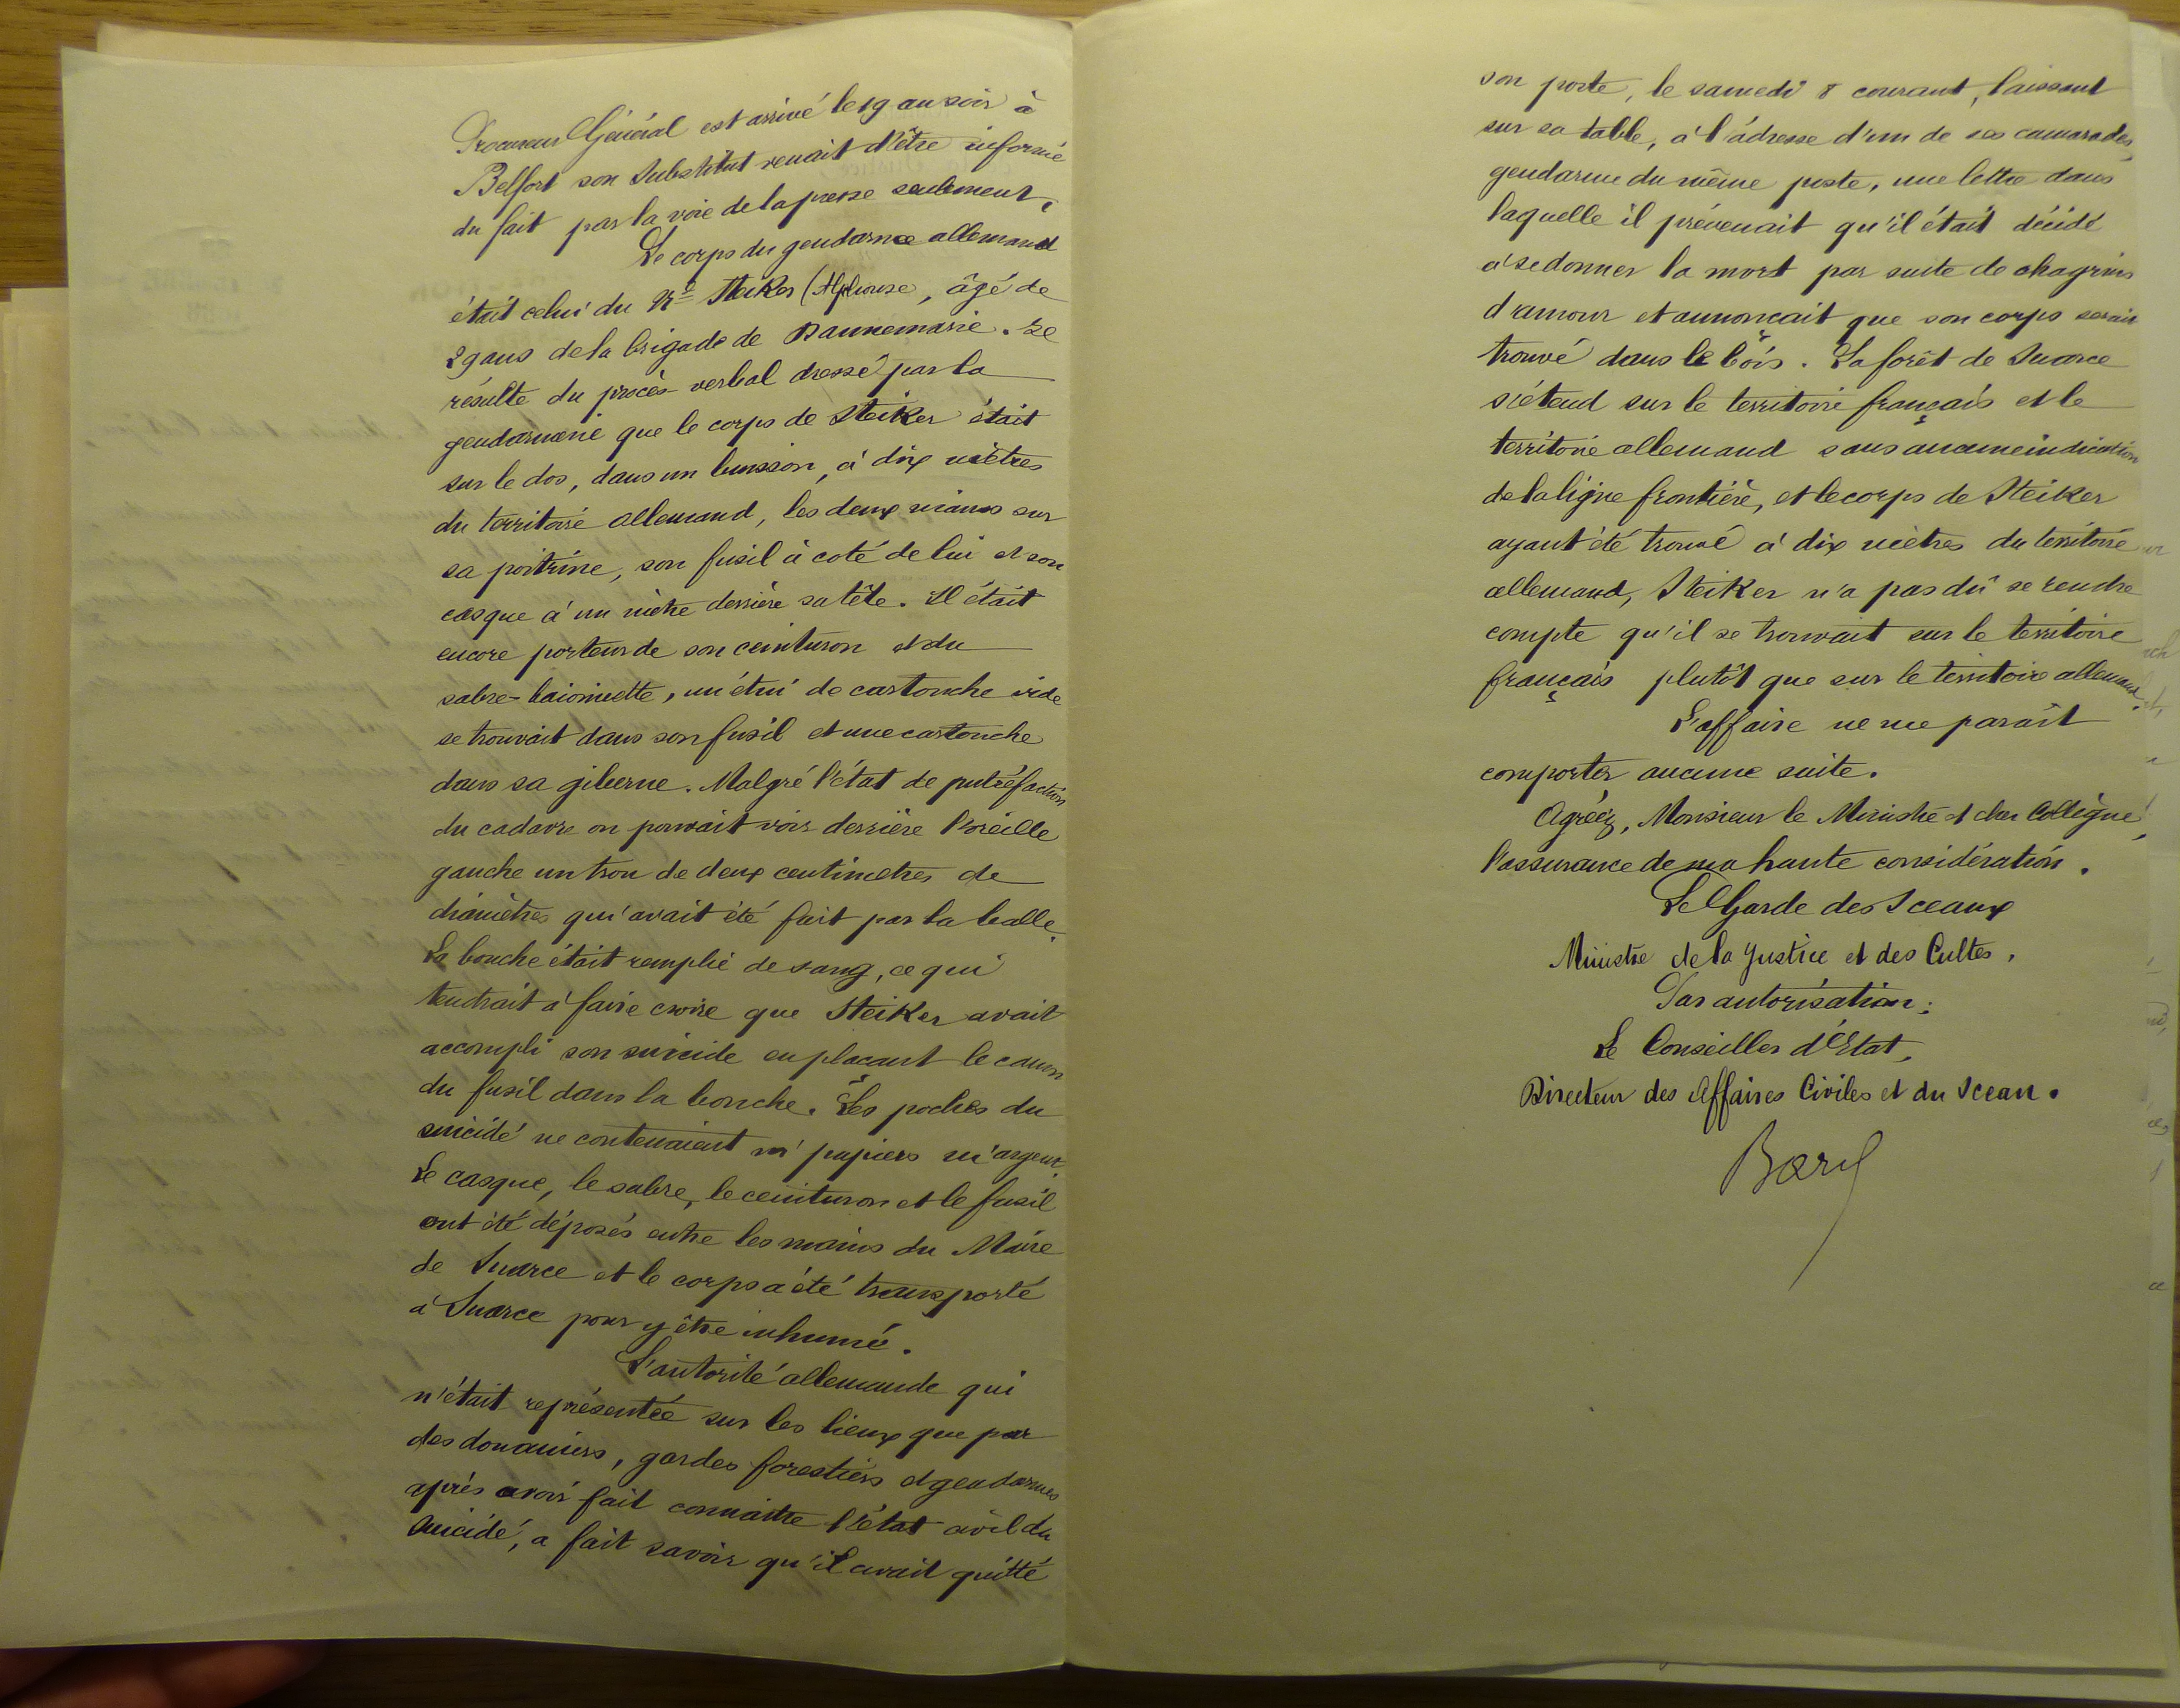 Procureur Général est arrivé le 19 au soir à
Belfort son Substitut venait d'être informé
du fait par la voie de la presse seulement.
Le corps du gendarme allemand
était celui du Né Steiker (Alphonse, âgé de
29 ans de la brigade de Dannemarie. Il
résulte du procès-verbal dressé par la
gendarmerie que le corps de Steiker était
sur le dos, dans un buisson, à dix mètres
du territoire allemand, les deux mains sur
sa poitrine, son fusil à coté de lui et son
casque à un mètre derrière sa tête. Il était
encore porteur de son ceinturon et du
sabre-baionnette, un étui de cartouche vide
se trouvait dans son fusil et une cartouche
dans sa giberne. Malgré l'état de putréfaction
du cadavre on pouvait voir derrière l'oreille
gauche un trou de deux centimètres de
diamètres qui avait été fait par la balle.
La bouche était remplie de sang, ce qui
tendrait à faire croire que Steiker avait
accompli son suicide en plaçant le canon
du fusil dans la bouche. Les poches du
suicidé ne contenaient ni papiers ni argent.
Le casque, le sabre, le ceinturon et le fusil
ont été déposés entre les mains du Maire
de Suarce et le corps a été transporté
à Suarce pour y être inhumé.
L'autorité allemande qui
n'était représentée sur les lieux que par
des douaniers, gardes forestiers et gendarmes
après avoir fait connaitre l'état civil du
suicidé, a fait savoir qu'il avait quitté
son poste, le samedi 8 courant, laissant
sur sa table, à l'adresse d'un de ses camarades,
gendarme du même poste, une lettre dans
laquelle il prévenait qu'il était décidé
à se donner la mort par suite de chagrins
d'amour et annonçait que son corps serait
trouvé dans le bois. La forêt de Suarce
s'étend sur le territoire français et le
territoire allemand sans aucune indication
de la ligne frontière, et le corps de Steiker
ayant été trouvé à dix mètres du territoire
allemand, Steiker n'a pas dû se rendre
compte qu'il se trouvait sur le territoire
français plutôt que sur le territoire allemand.
L'affaire ne me parait
comporter aucune suite.
Agréez, Monsieur le Ministre et cher Collègue,
l'assurance de ma haute considération.
Le Garde des Sceaux
Ministre de la Justice et des Cultes,
Par autorisation:
Le Conseiller d'Etat,
Directeur des Affaires Civiles et du Sceau.